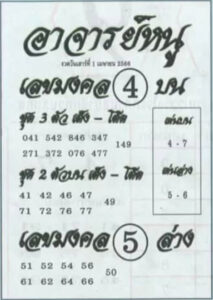 อาจารย์หนู
งวดวันเสาร์ที่ 1 เมษายน 2566
เลขมงคล 4 บน
ชุด 3 ตัว เต็ง - โต๊ด
041 542 846 347
271 372 076 477
149
เด่นบน
4 - 7
ชุด 2 ตัวบน เต็ง - โต๊ด
41 42 46 47
71 72 76 77
49
เด่นล่าง
5 - 6
เลขมงคล 5 ล่าง
51 52 54 56
61 62 64 66
50